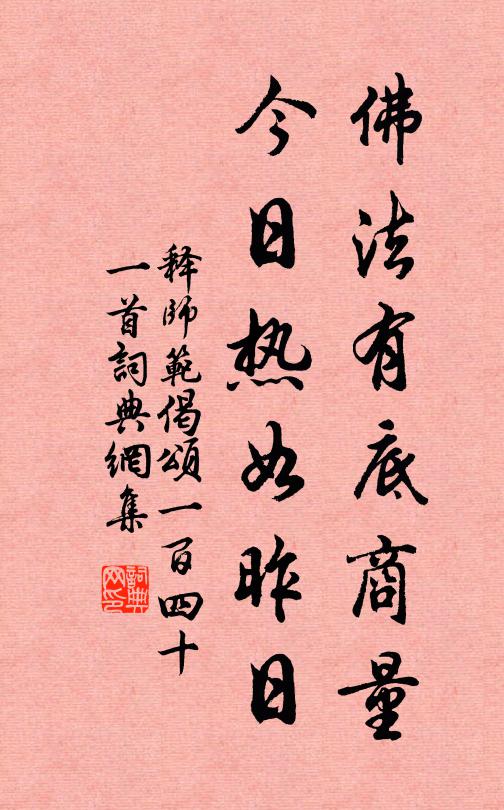 佛法有底商量
今日热如昨日
释師範偈頌一百四十
一首詞典網集
詞典
网印